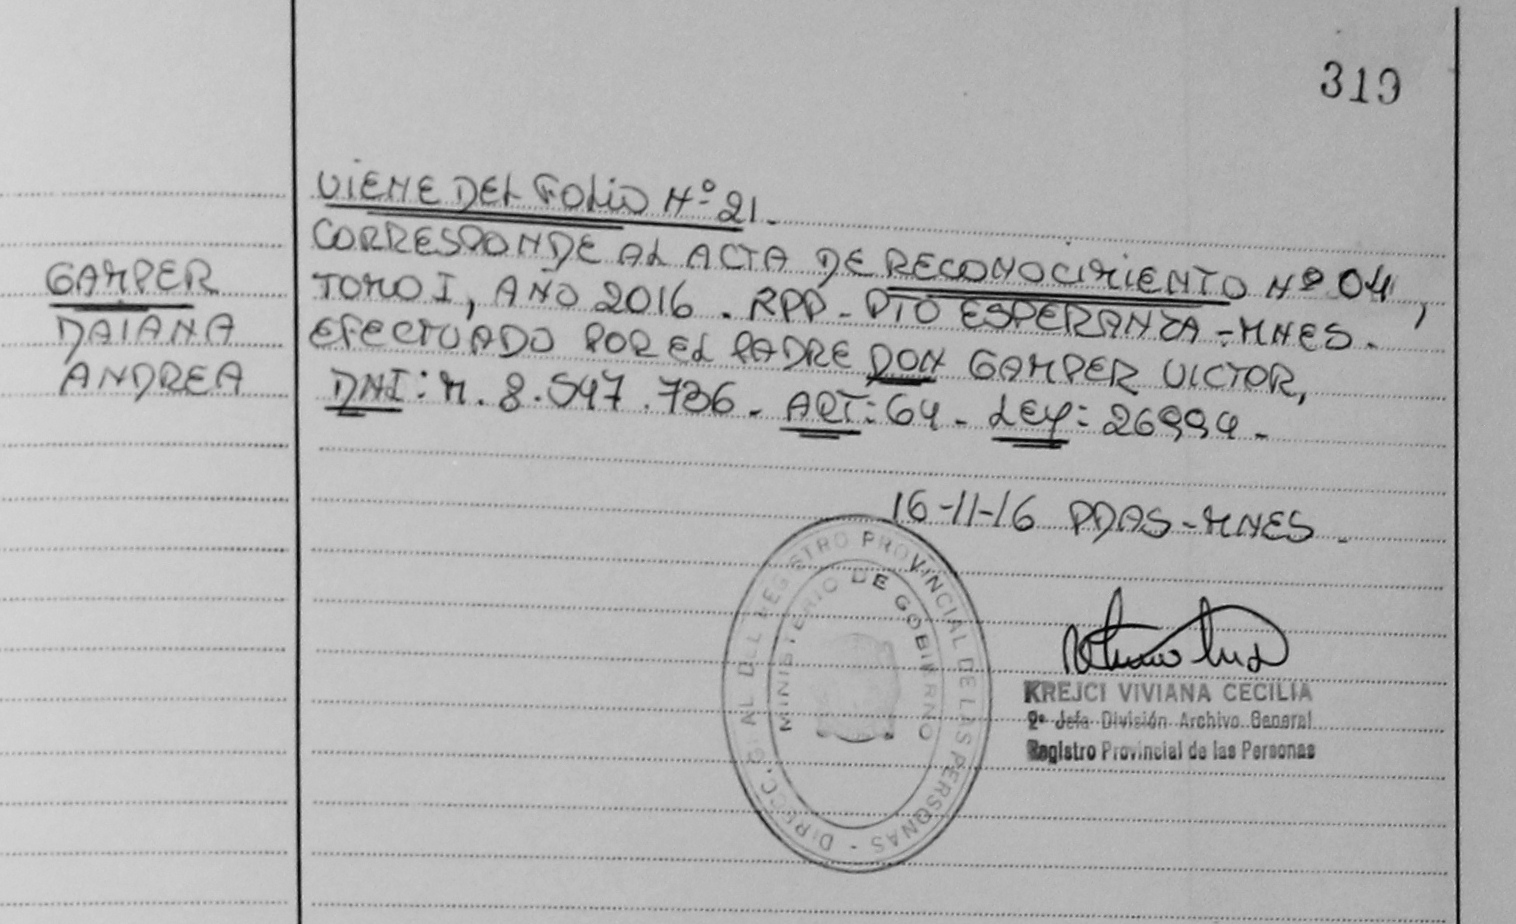 319
VIENE DEL FOLIO Nº 21.
CORRESPONDE AL ACTA DE RECONOCIMIENTO Nº 04,
TOMO I, AÑO 2016. RPP - PTO ESPERANZA - MNES.
EFECTUADO POR EL PADRE DON GAMPER VICTOR,
DNI: M. 8.547.736 - ART: 64 - LEY: 26994 -
GAMPER
DAIANA
ANDREA
16-11-16 PDAS - MNES -
DIRECC. GRAL DEL REGISTRO PROVINCIAL DE LAS PERSONAS -
MINISTERIO DE GOBIERNO
KREJCI VIVIANA CECILIA
2º Jefa División Archivo General
Registro Provincial de las Personas